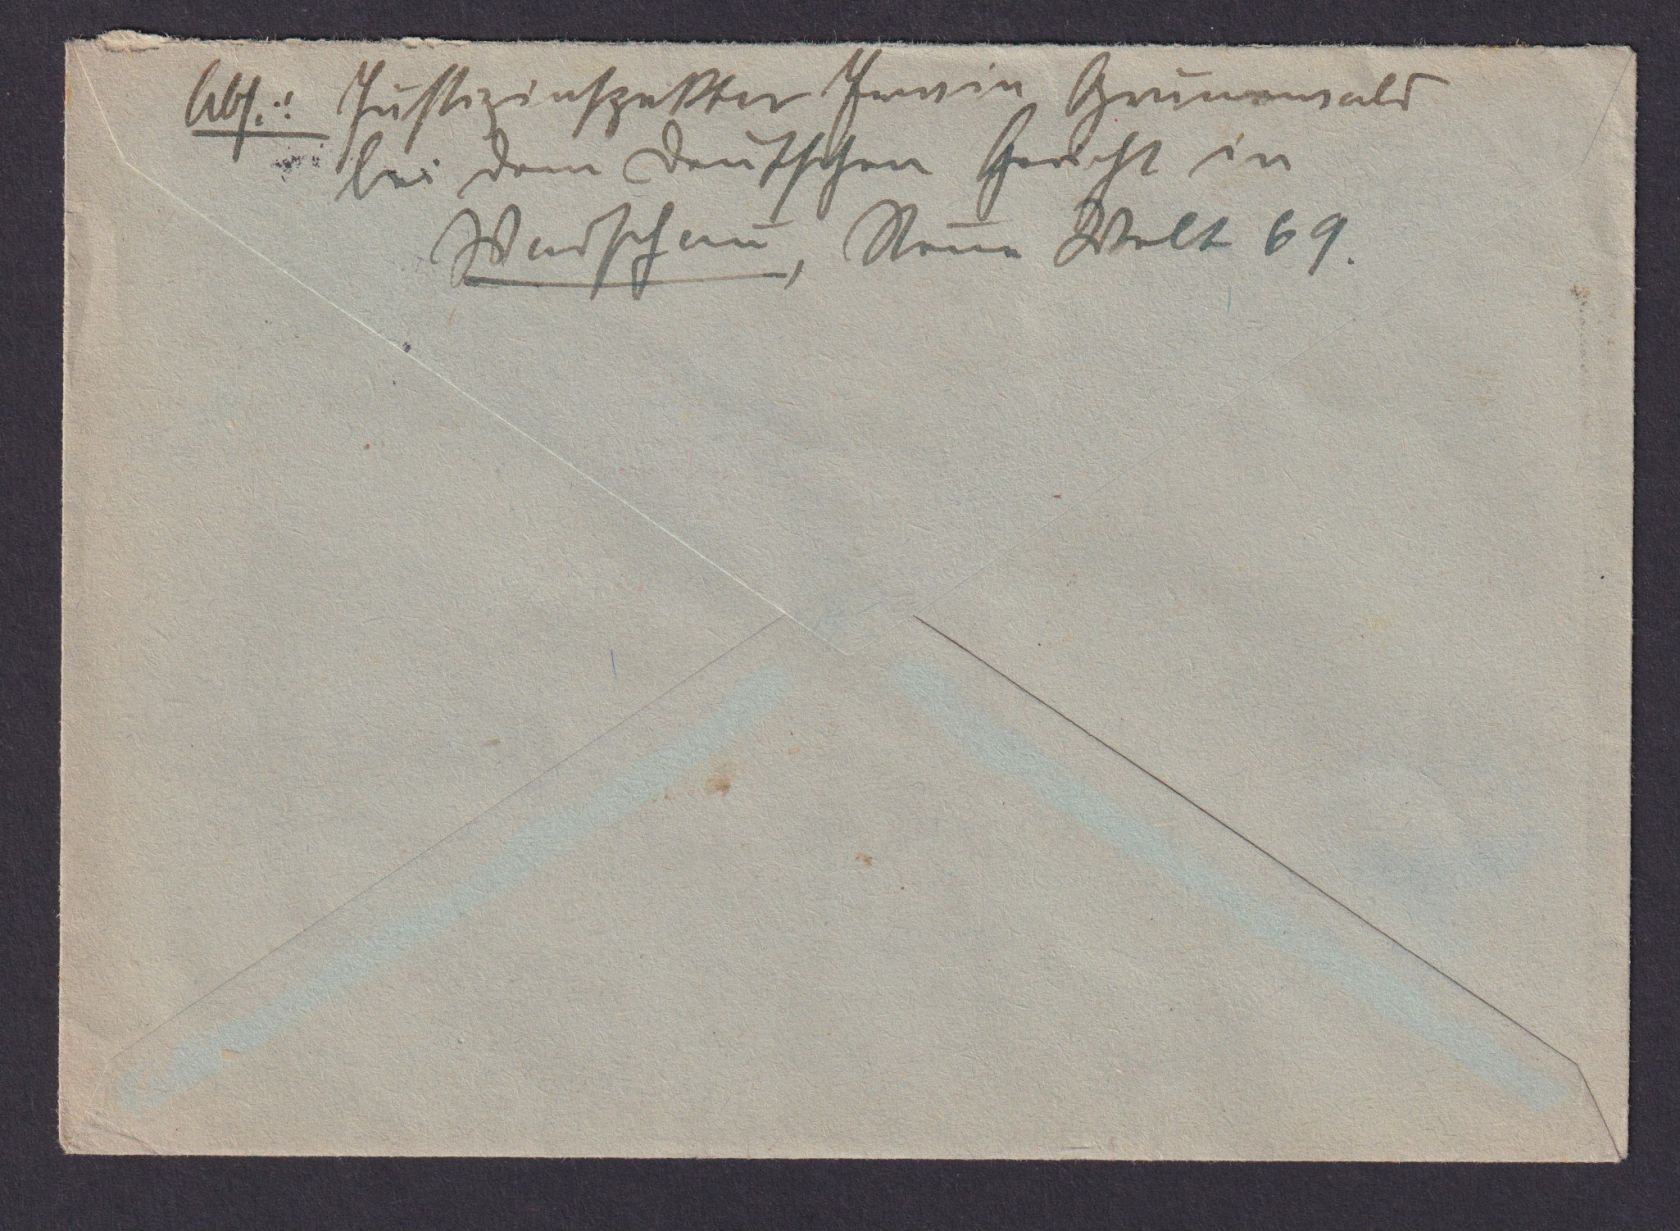 Abs.: Justizinspektor Erwin Grunenwald
bei dem Deutschen Gericht in
Warschau, Neue Welt 69.